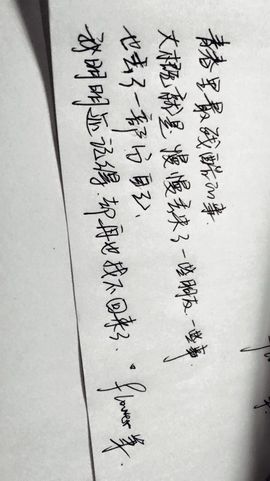 青春里最残酷的事
大概就是慢慢丢失了一些朋友、一些事
也丢了一部分自己、
我明明还记得 却再也找不回来了、
flower 筆